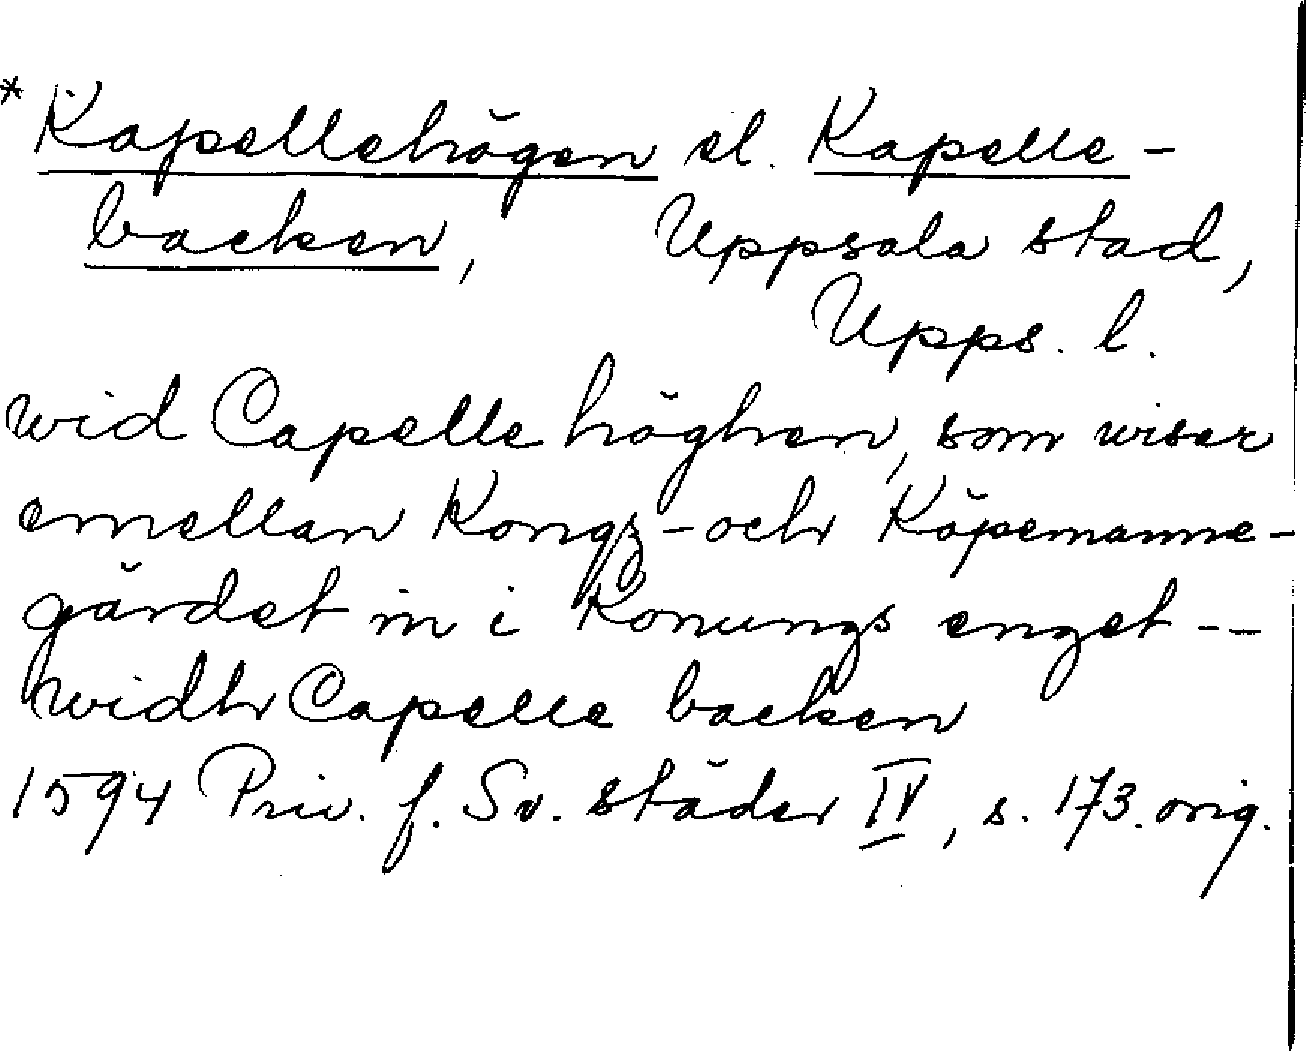 * Kapellehögen el. Kapelle-
backen, Uppsala stad,
Upps. l.
wid Capelle höghen, som wiser
emellan Kongz- och Köpemanne-
gärdet in i Konungs enget --
widh Capelle backen
1594 Priv. f. Sv. städer IV, s. 173. orig.